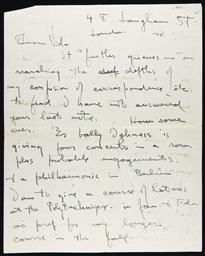 48 Langham St
London. W
Dear Vida
It "further grieves me" on
searching the depths of
my confusion of correspondence etc.
to find I have not answered
your last note. How come
ever. 'Es bally 'Ighness is
giving four concerts in a row
plus private engagements.
& a philharmonic in Berlin
I am to give a course of lectures
at the Polytechnique. in Jan & Feb
as pref for my longer
course in the fall.